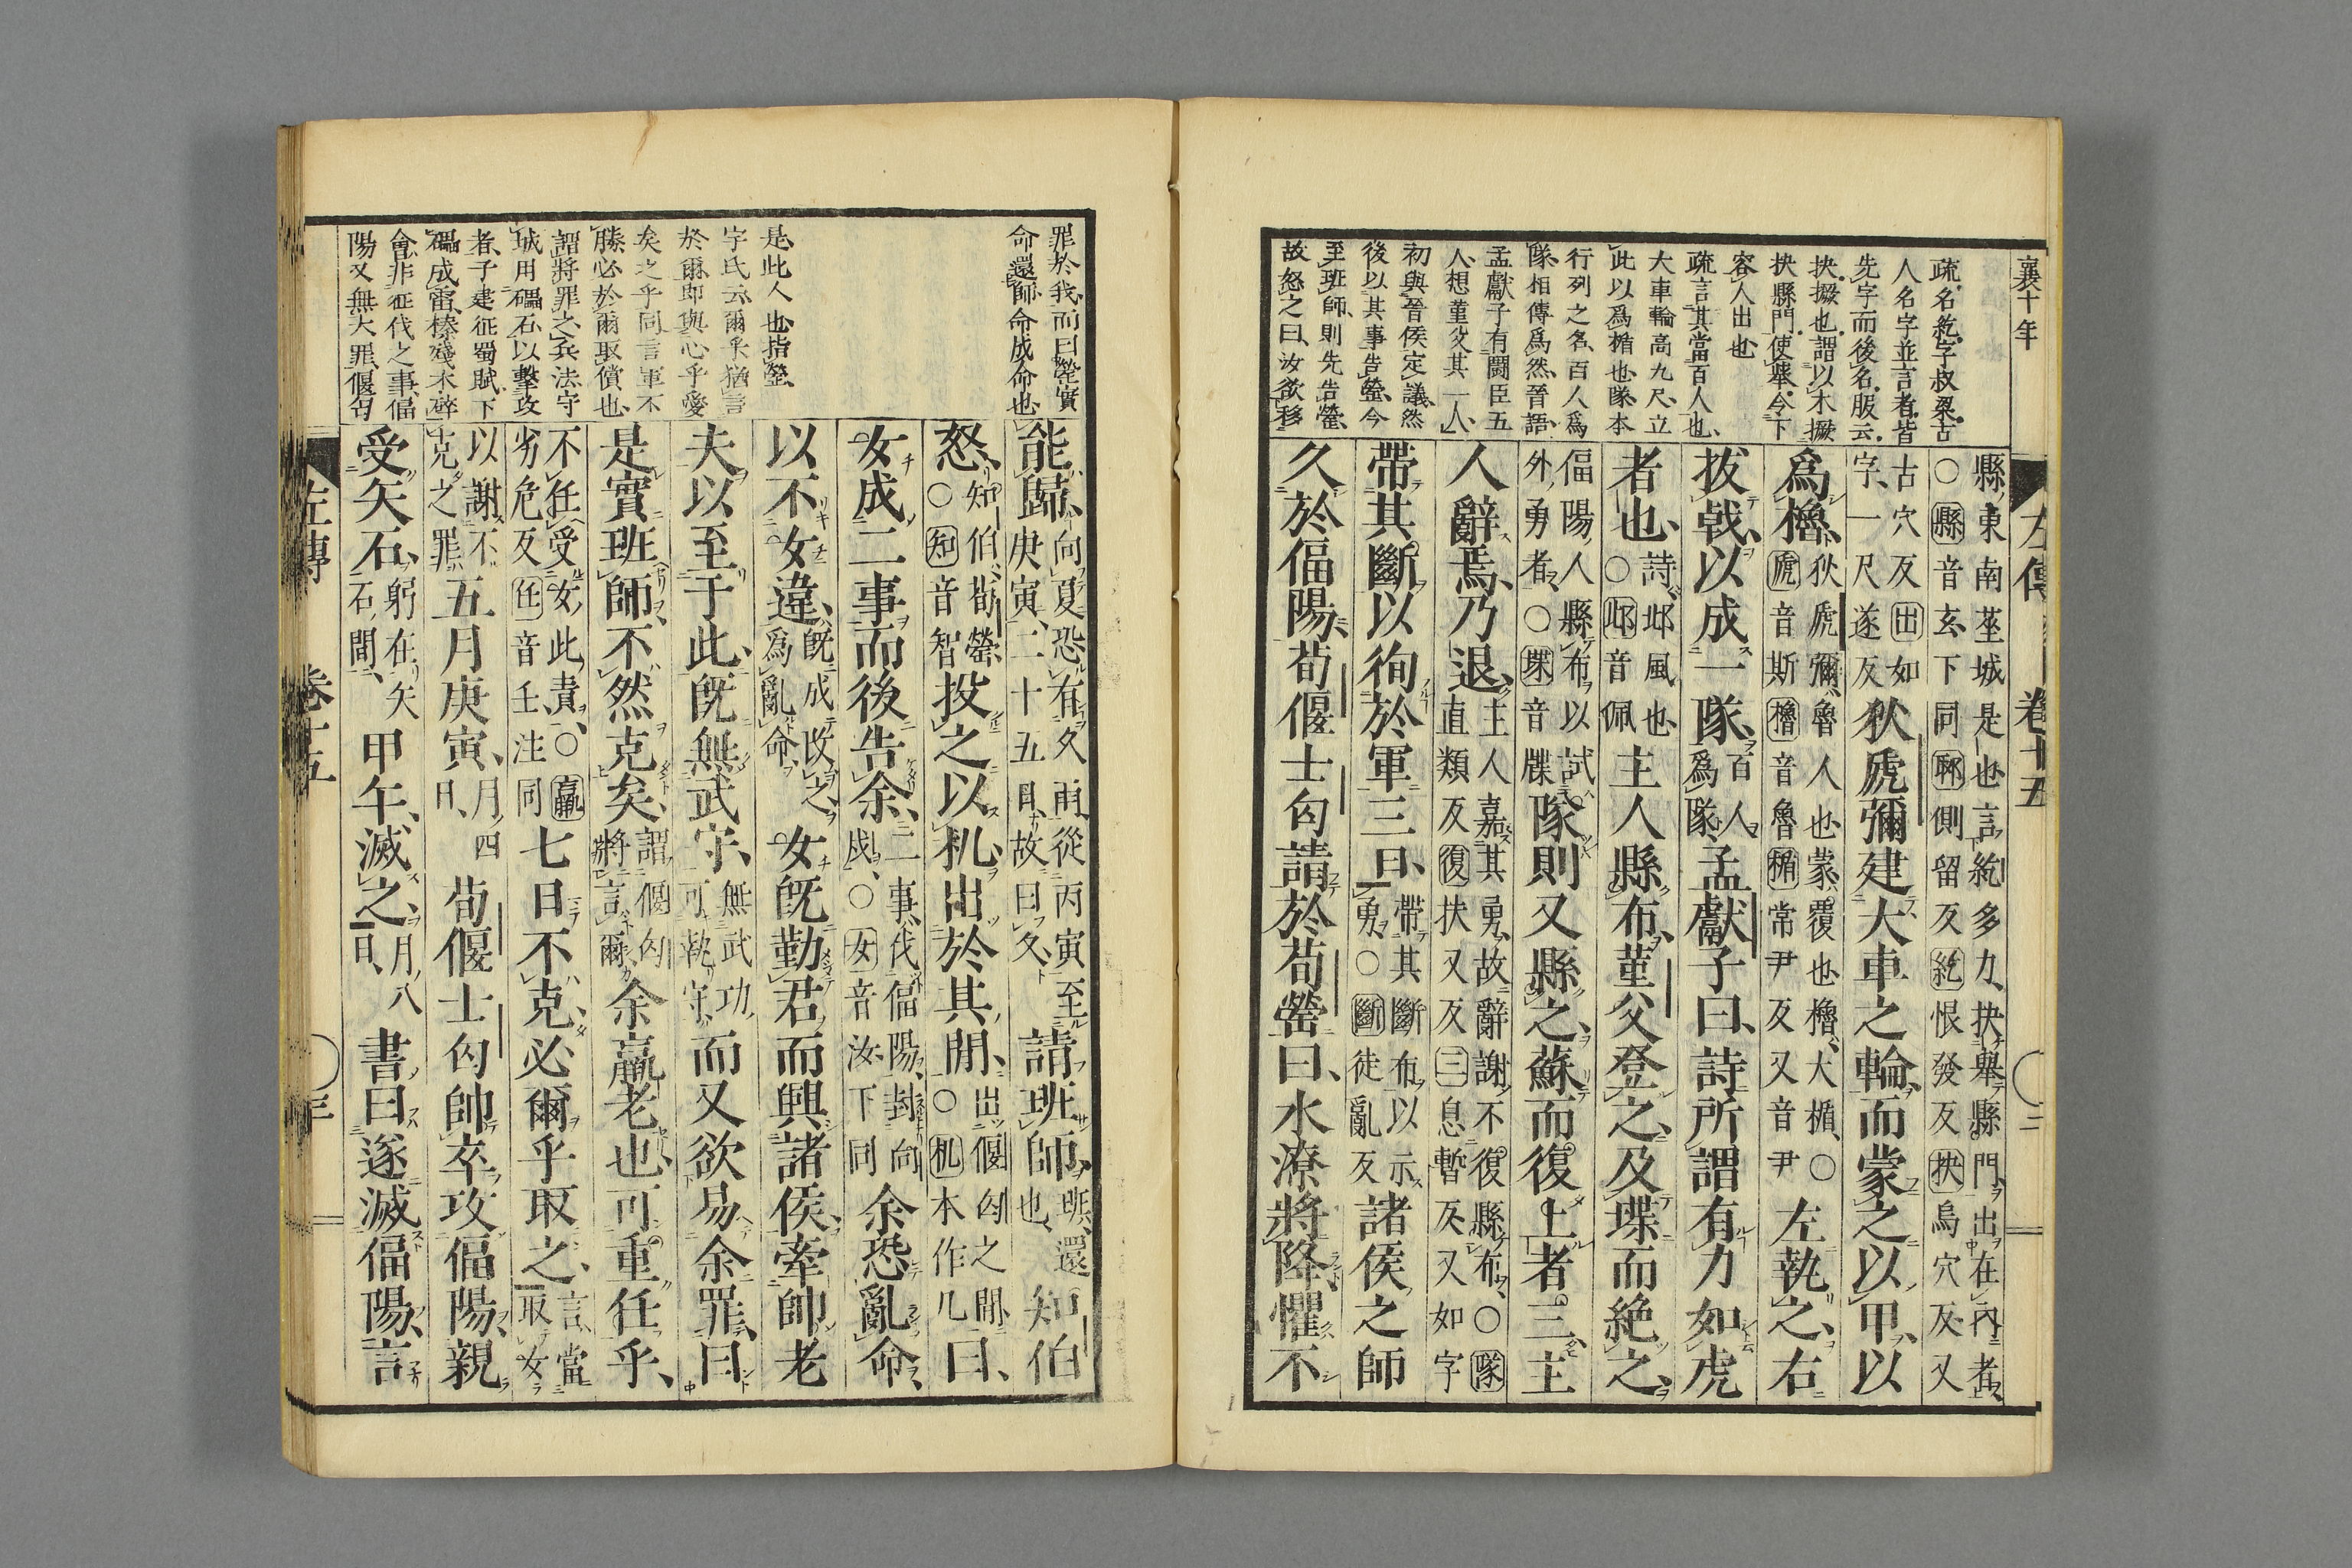 襄十年
疏名紇字叔梁古
人名字並言者皆
先字而後名服云
抉撅也謂以木撅
抉縣門使舉令下
容人出也
疏言其當百人也
大車輪高九尺立
此以爲楯也隊本
行列之名百人爲
隊相傳爲然晉語
孟獻子有鬬臣五
人想堇父其一人
初與晉侯定議然
後以其事告罃今
至班師則先告罃
故怒之曰汝欲移
縣東南莝城是也言紇多力抉舉縣門出在內者
○縣音玄下同郰側留反紇恨發反抉烏穴反又
古穴反出如
字一尺遂反
狄虒彌建大車之輪而蒙之以甲以
爲櫓
狄虒彌魯人也蒙覆也櫓大楯○
虒音斯櫓音魯楯常尹反又音尹
左執之右
拔戟以成一隊
百人
爲隊
孟獻子曰詩所謂有力如虎
者也
詩邶風也
○邶音佩
主人縣布堇父登之及堞而絶之
偪陽人縣布以試
外勇者○堞音牒
隊則又縣之蘇而復上者三主
人辭焉乃退
主人嘉其勇故辭謝不復縣布○隊
直類反復扶又反三息暫反又如字
帶其斷以徇於軍三日
帶其斷布以示
勇○斷徒亂反
諸侯之師
久於偪陽荀偃士匄請於荀罃曰水潦將降懼不
左傳 卷十五 ○二
罪於我而曰罃實
命還師命成命也
是此人也指罃
字氏云爾乎猶言
於爾即與心乎愛
矣之乎同言軍不
勝必於爾取償也
謂將罪之兵法守
城用礌石以擊攻
者子建征蜀賦下
礌成雷榛殘木碎
會非征伐之事偪
陽又無大罪偃匄
能歸
向夏恐有久雨從丙寅至
庚寅二十五日故曰久
請班師
班還
也
知伯
怒
知伯荀罃
○知音智
投之以机出於其閒
出偃匄之閒
○机本作几
曰
女成二事而後告余
二事伐偪陽封向
戌○女音汝下同
余恐亂命
以不女違
既成改之
爲亂命
女既勤君而興諸侯牽帥老
夫以至于此既無武守
無武功
可執守
而又欲易余罪曰
是實班師不然克矣
謂偃匄
將言爾
余羸老也可重任乎
不任受女此責○羸
劣危反任音壬注同
七日不克必爾乎取之
言當
取女
以謝不
克之罪
五月庚寅
月四
日
荀偃士匄帥卒攻偪陽親
受矢石
躬在矢
石間
甲午滅之
月八
日
書曰遂滅偪陽言
左傳 卷十五 ○三